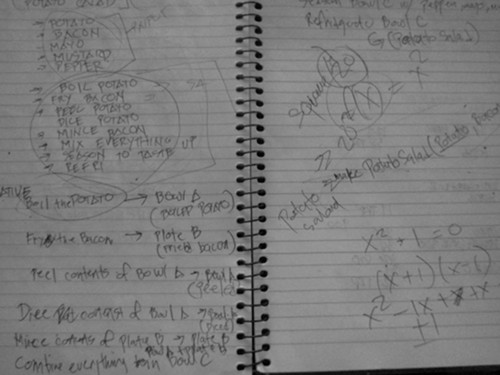 POTATO SALAD
POTATO
BACON
MAYO
MUSTARD
PEPPER
INPUT
BOIL POTATO
FRY BACON
PEEL POTATO
DICE POTATO
MINCE BACON
MIX EVERYTHING UP
SEASON TO TASTE
REFRI
Boil the POTATO → Bowl A
(boiled potato)
Fry the Bacon → Plate B
(fried bacon)
Peel contents of Bowl A → Bowl A
(peeled)
Dice contents of Bowl A → Bowl A
(diced)
Mince contents of Plate B → Plate B
Combine everything in Bowl C
Season Bowl C w/ Pepper, mayo,
Refrigerate Bowl C
(Potato Salad)
square
20
(x) = x²
Potato Salad = make PotatoSalad (Potato, Bacon
x² + 1 = 0
(x+1)(x-1)
x² - 1x + x
±1